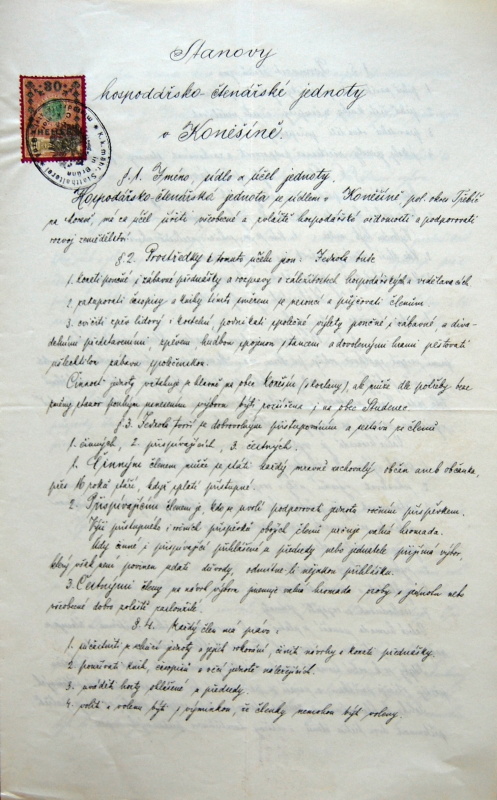 Stanovy
hospodářsko-čtenářské jednoty
v Koněšíně.
80
k.k. mähr. Statthalterei in Brünn
§. 1. Jméno, sídlo a účel jednoty.
Hospodářsko-čtenářská jednota se sídlem v Koněšíně pol. okres Třebíč
na Moravě, má za účel šířiti všeobecné a zvláště hospodářské vědomosti a podporovati
rozvoj zemědělství.
§ 2. Prostředky k tomuto účelu jsou: Jednota bude
1. konati poučné i zábavné přednášky a rozpravy o záležitostech hospodářských a vzdělavacích
2. časopisy a knihy tímto směrem se nesoucí a půjčovati členům
3. cvičiti zpěv lidový i kostelní, podnikati společné výlety poučné i zábavné, a diva-
delními představeními, zpěvem hudbou spojenou s tancem a dovolenými hrami pěstovati
ušlechtilou zábavu společenskou.
Činnost jednoty vztahuje se hlavně na obec Koněšín (a Kozlany), ale může dle potřeby beze
změny stanov pouhým usnesením výboru býti rozšířena i na obec Studenec.
§ 3. Jednota tvoří se dobrovolným přistupováním a sestává ze členů
1. činných, 2. přispívajících, 3. čestných.
1. Činným členem může se státi každý mravně zachovalý občan aneb občanka,
přes 16 roků stáří, když zplatí přístupné.
2. Přispívajícím členem je, kdo se uvolí podporovati jednotu ročním příspěvkem.
Výši přístupného i ročních příspěvků obojích členů určuje valná hromada.
Údy činné i přispívající přihlášené u předsedy nebo jednatele přijímá výbor,
který však není povinen udati důvody, odmítne-li nějakou přihlášku.
3. Čestnými členy na návrh výboru jmenuje valná hromada osoby o jednotu nebo
všeobecné dobro zvláště zasloužilé.
§ 4. Každý člen má právo:
1. súčastniti se schůzí jednoty a jejich rokování, činiti návrhy a konati přednášky.
2. používati knih, časopisů a věcí jednotě náležejících.
3. uváděti hosty ohlášené u předsedy.
4. voliti a volenu býti s výminkou, že členky nemohou býti voleny.